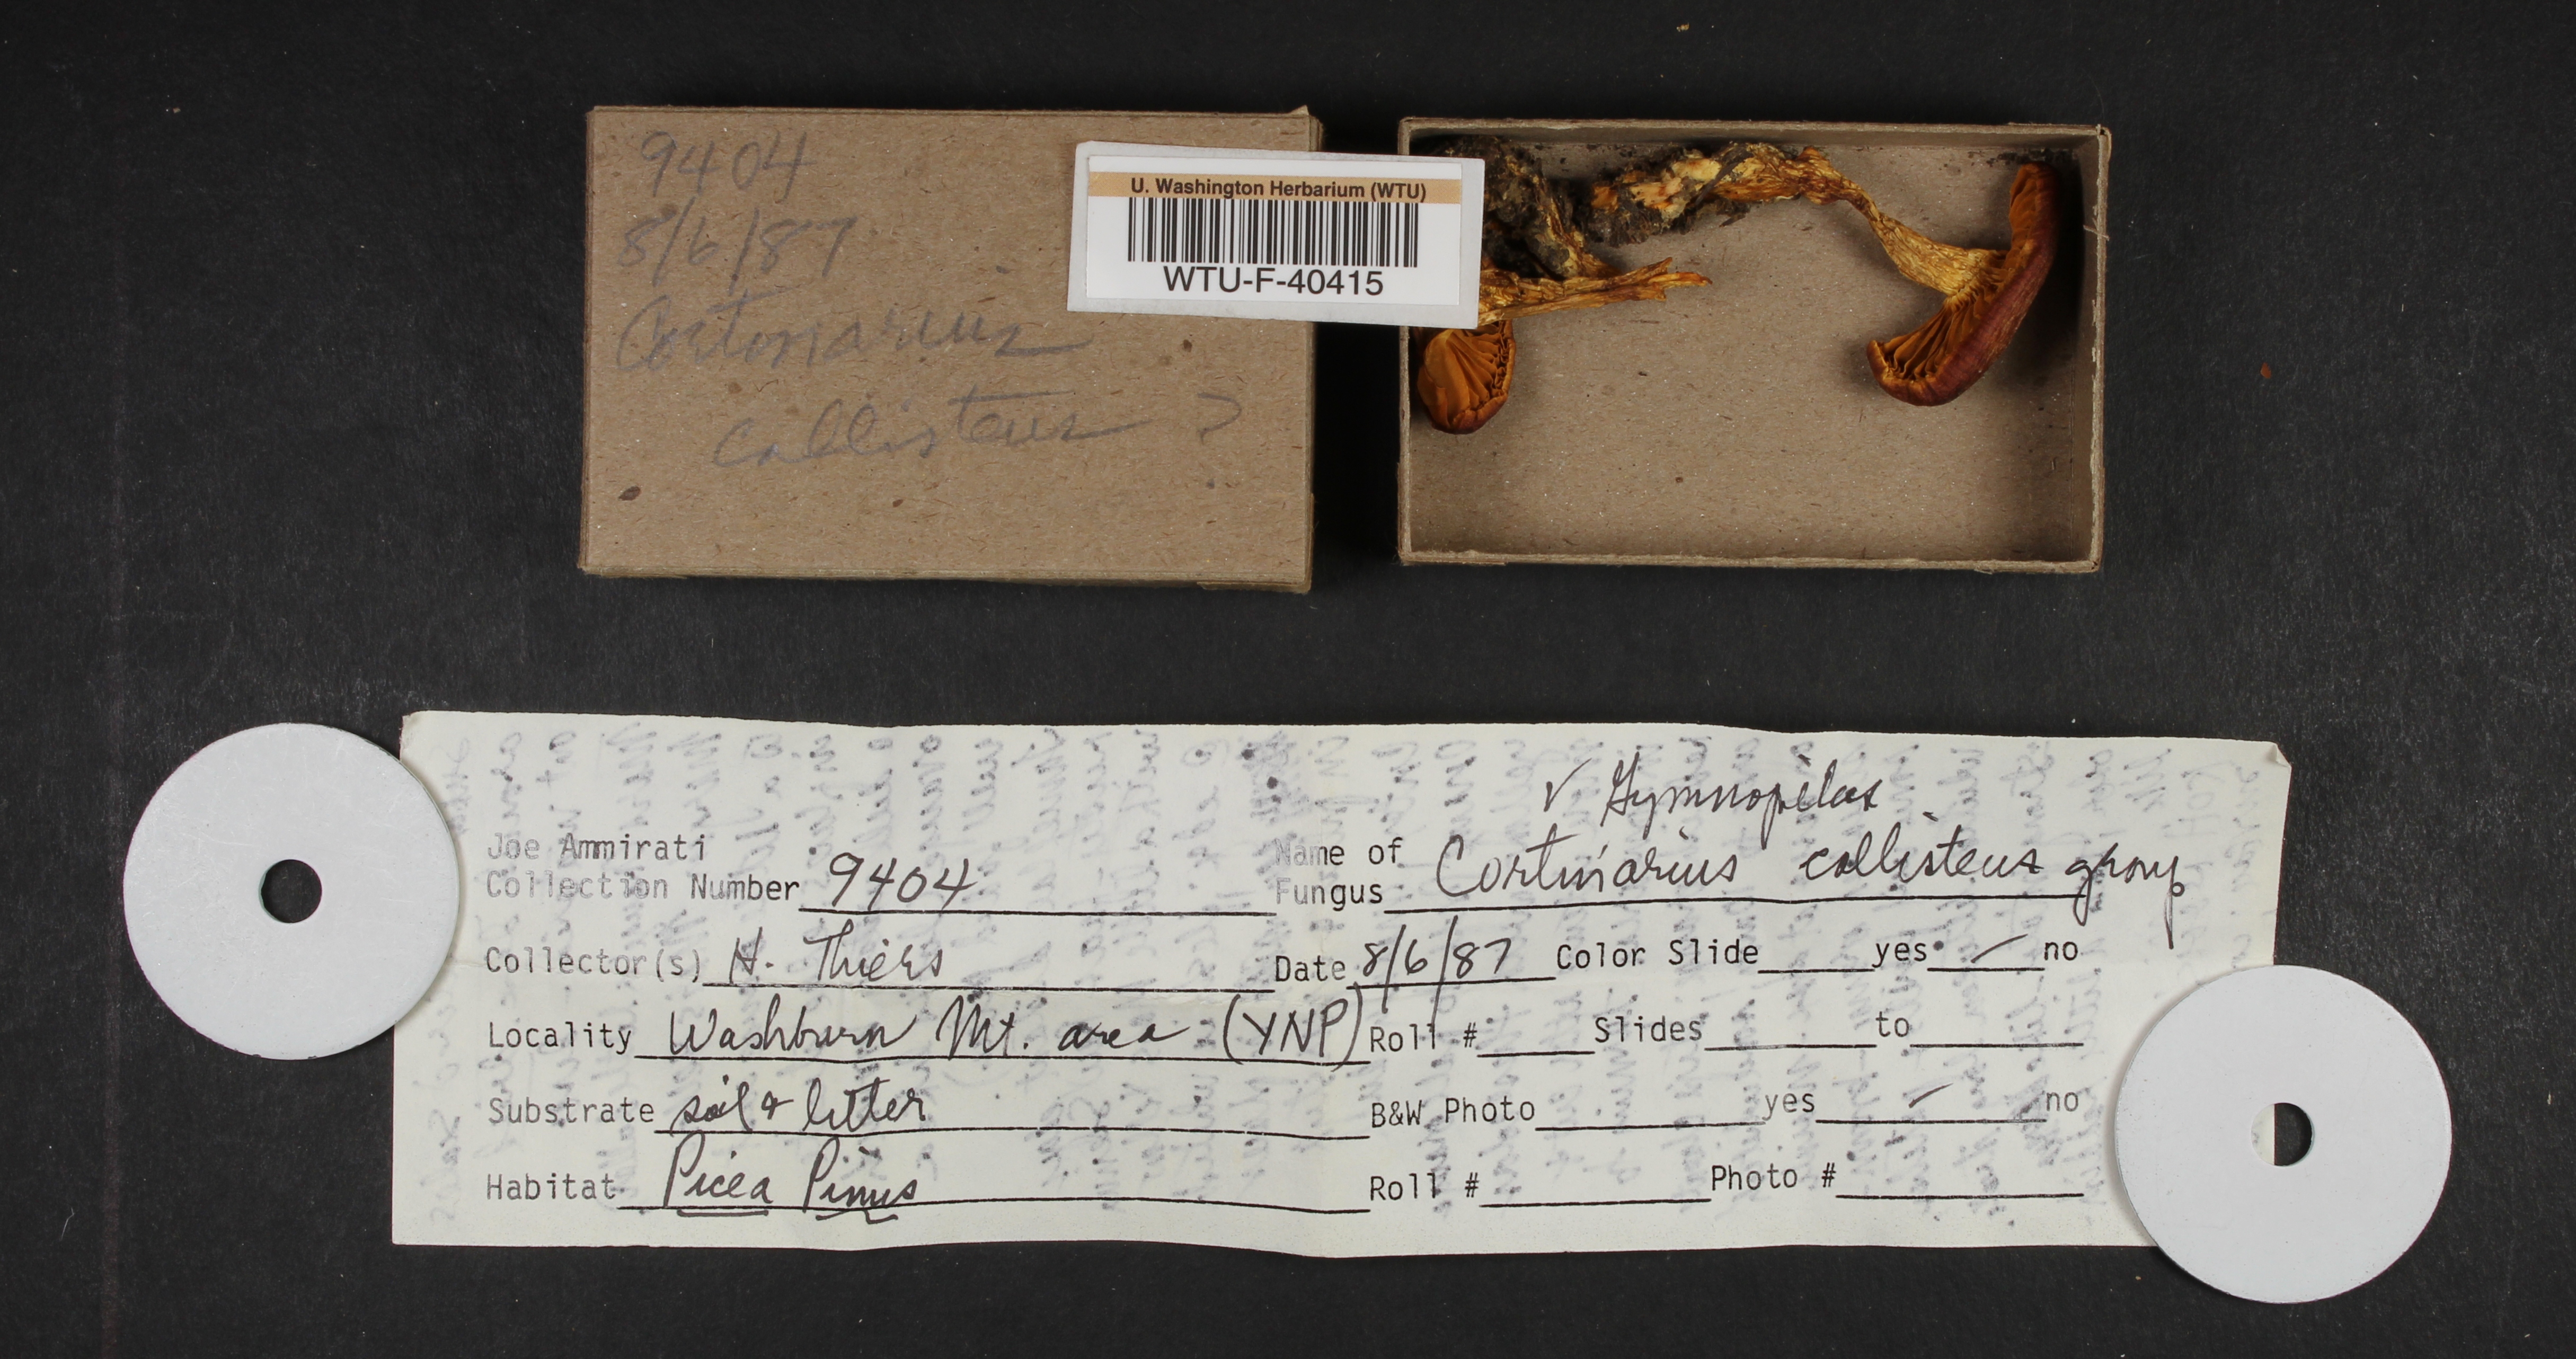 9404
8/6/87
Cortinarius
callisteus ?
U. Washington Herbarium (WTU)
WTU-F-40415
√ Gymnopilus
Joe Ammirati
Collection Number 9404
Name of
Fungus Cortinarius callisteus group
Collector(s) H. Thiers
Date 8/6/87 Color Slide yes / no
Locality Washburn Mt. area (YNP)
Roll # Slides to
Substrate soil & litter
B&W Photo yes / no
Habitat Picea Pinus
Roll # Photo #